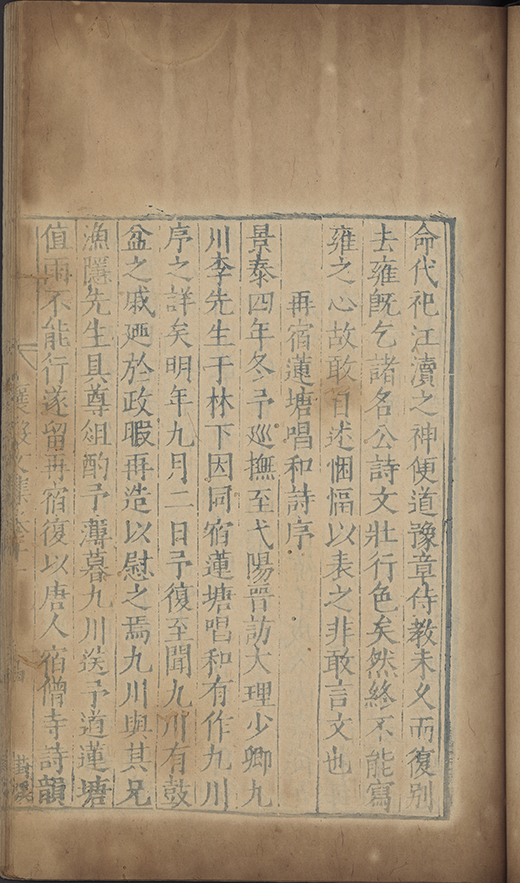 命代祀江瀆之神便道豫章侍教未久而復別
去雍旣乞諸名公詩文壯行色矣然終不能寫
雍之心故敢自述悃愊以表之非敢言文也
再宿蓮塘唱和詩序
景泰四年冬予廵撫至弋陽嘗訪大理少卿九
川李先生于林下因同宿蓮塘唱和有作九川
序之詳矣明年九月二日予復至聞九川有鼓
盆之戚廼於政暇再造以慰之焉九川與其兄
漁隱先生具尊俎酌予薄暮九川送予道蓮塘
值雨不能行遂留再宿復以唐人宿僧寺詩韻